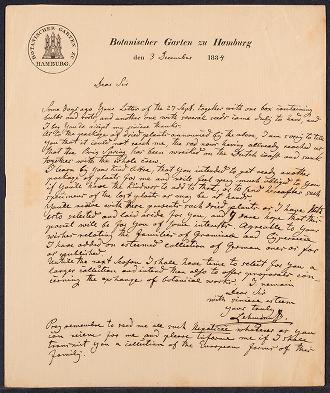 BOTANISCHER GARTEN ZU
HAMBURG
Botanischer Garten zu Hamburg
den 3 December 1834
Dear Sir
Some days ago Your Letter of the 27 Sept. together with one box containing
bulbs and roots and another one with several seeds came duly to hand and
I beg You to accept my sincere thanks.
As to the package of dried plants announced by the above, I am sorry to tell
You that it could not reach me, the sad news having already reached us
that the Brig Spring has been wrecked on the Dutch coast and sunk
together with the whole crew.
I learn by Your kind letter, that You intended to get ready another
package of plants for me and would feel very much obliged to You
if You'll have the kindness to add to that, or to send hereafter such
specimens of the lost plants as may be at hand.
selected and laid aside for You, and I have hope that this
parcel will be for You of some interest. Agreeable to Your
wishes relating the families of Gramineae and Cyperaceae
I have added an esteemed collection of German ones as far
as published.
Until the next season I shall have time to select for You a
larger collection and intend then also to offer proposals con
cerning the exchange of botanical works. I remain
Dear Sir
with sincere esteem
Yours truly
Lehmann
Pray remember to send me all such Hepaticae whatever as You
can for me and please to inform me if I shall
transmit You a collection of the European forms of this
family.